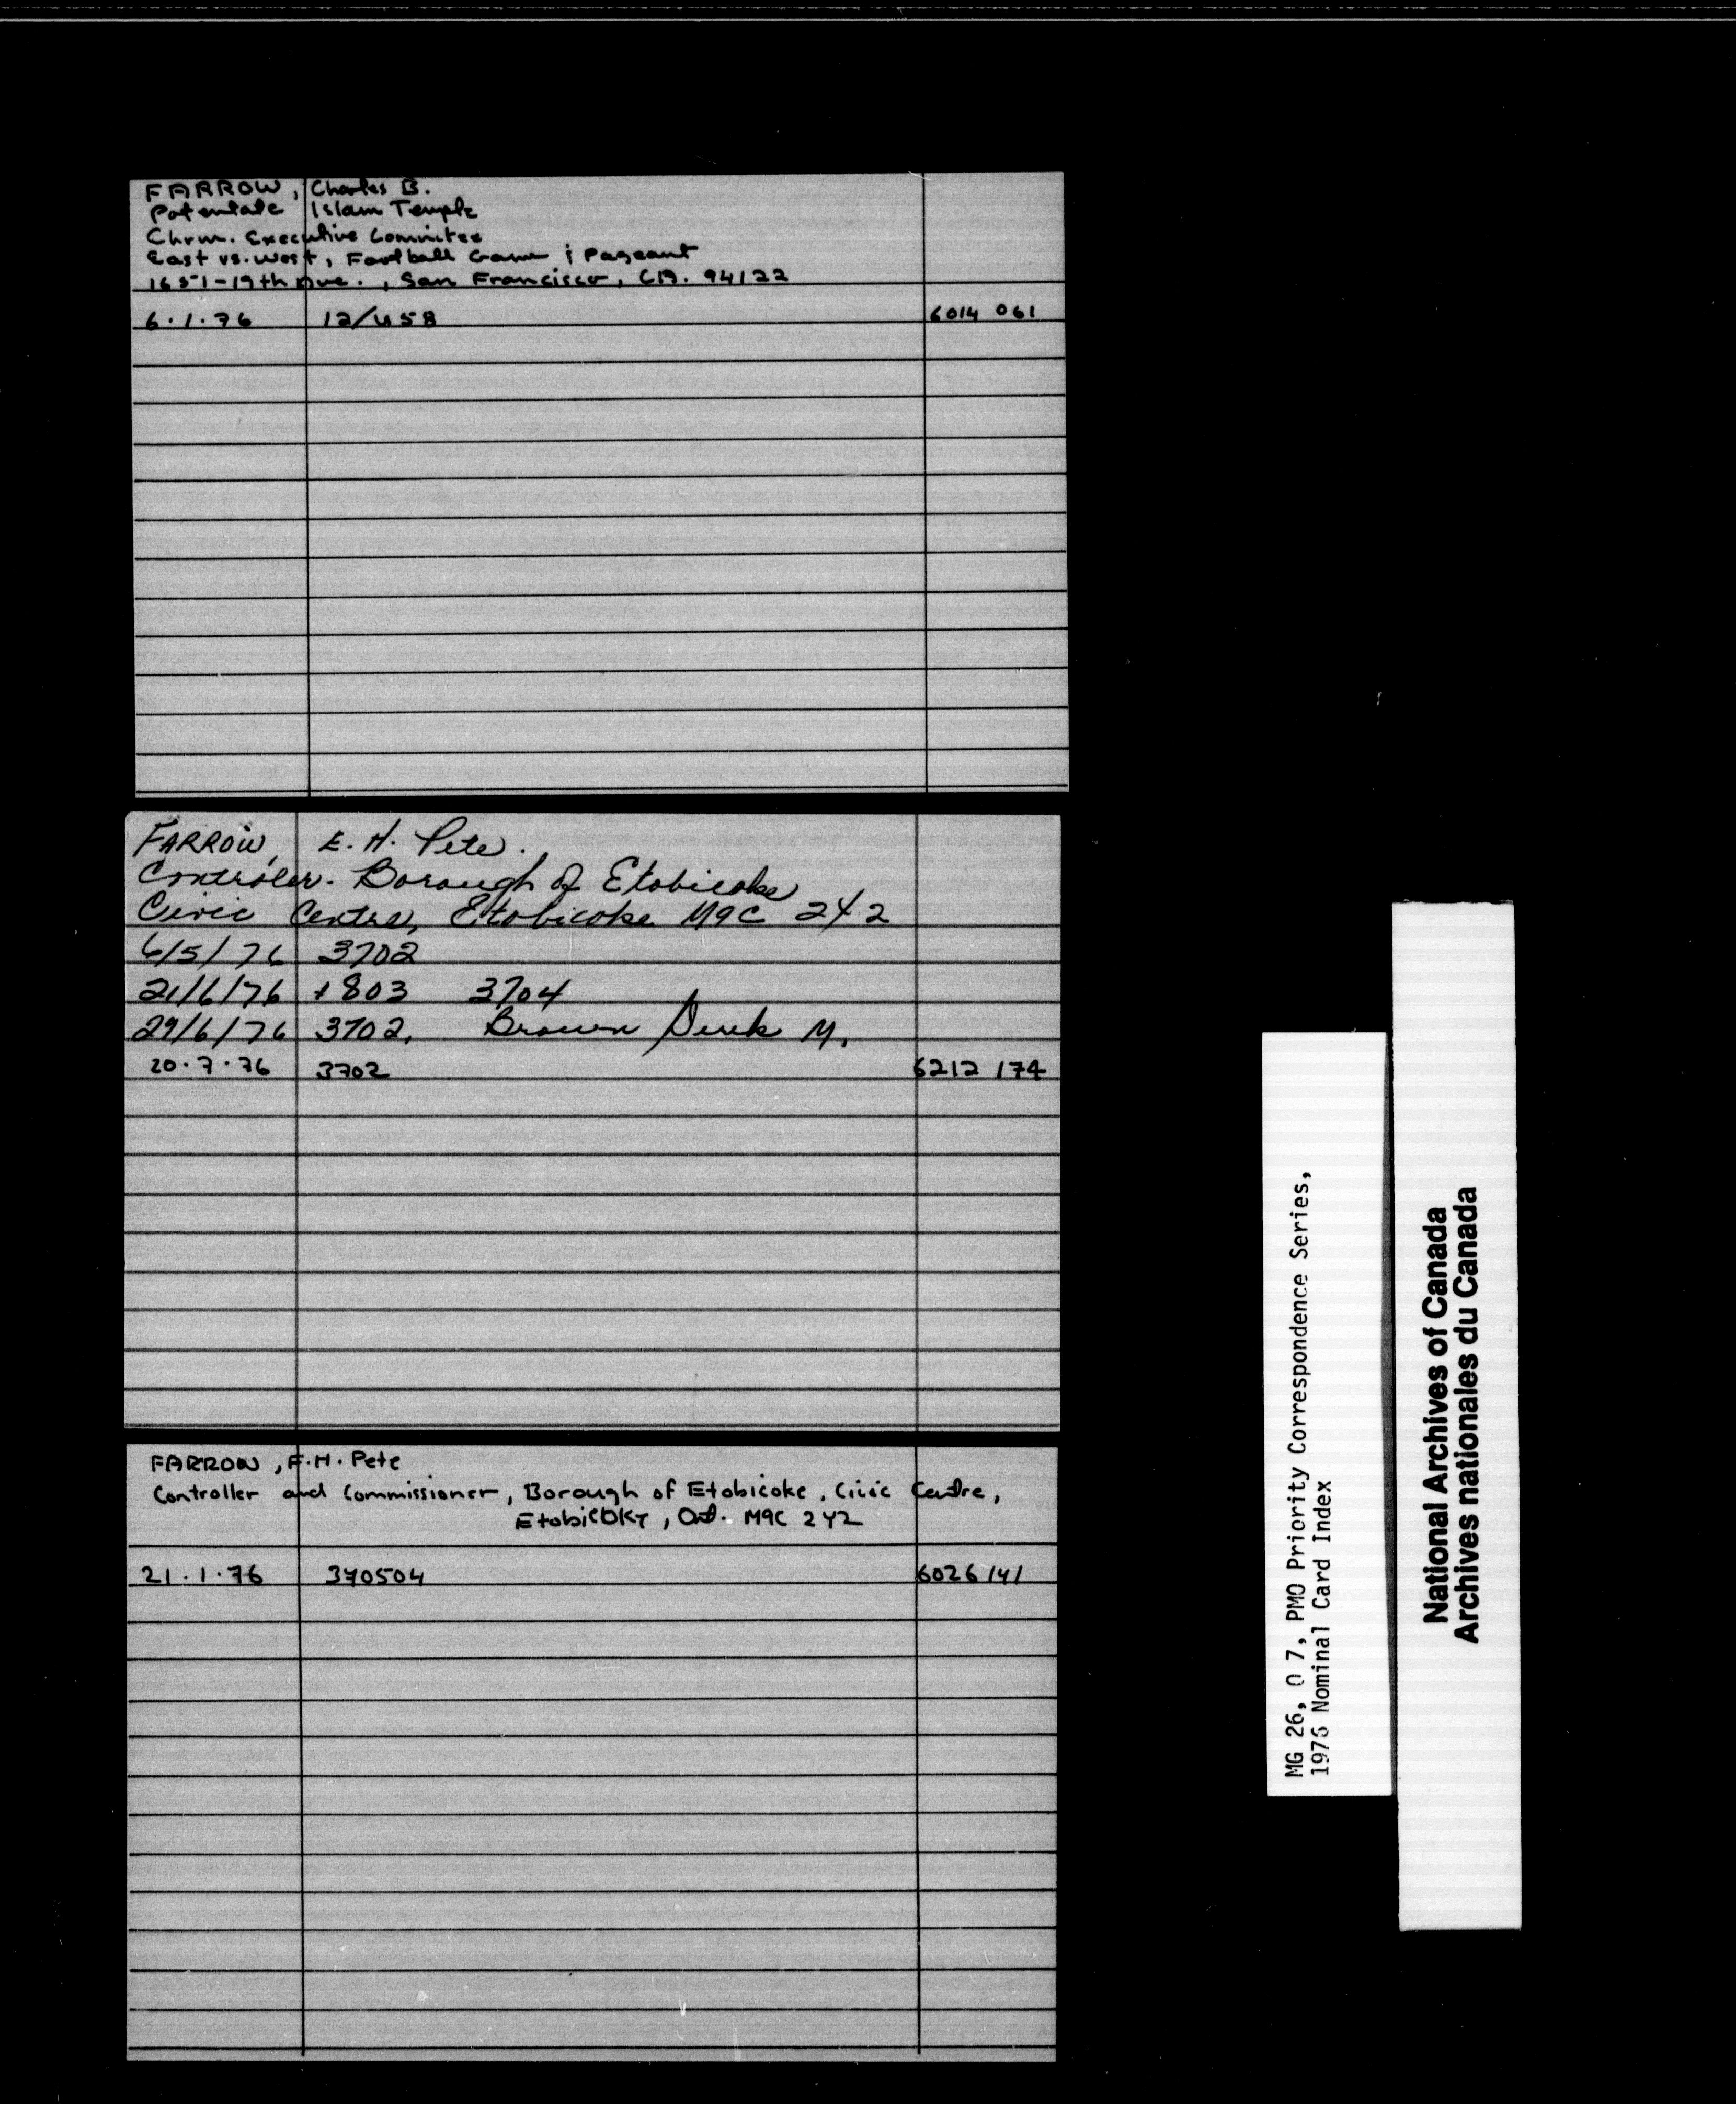 FARROW, Charles B.
Potentate Islam Temple
Chrm. Executive Committee
East vs. West, Football Game & Pageant
1651-19th Ave., San Francisco, CA. 94122
6.1.76 12/U58 6014 061
FARROW, E. H. Pete.
Controler. Borough of Etobicoke
Civic Centre, Etobicoke M9C 2Y2
6/5/76 3702
21/6/76 +803 3704
29/6/76 3702. Brown Derek M.
20.7.76 3702 6212 174
FARROW, F.H. Pete
Controller and Commissioner, Borough of Etobicoke, Civic Centre,
Etobicoke, Ont. M9C 2Y2
21.1.76 370504 6026 141
MG 26, O 7, PMO Priority Correspondence Series,
1976 Nominal Card Index
National Archives of Canada
Archives nationales du Canada